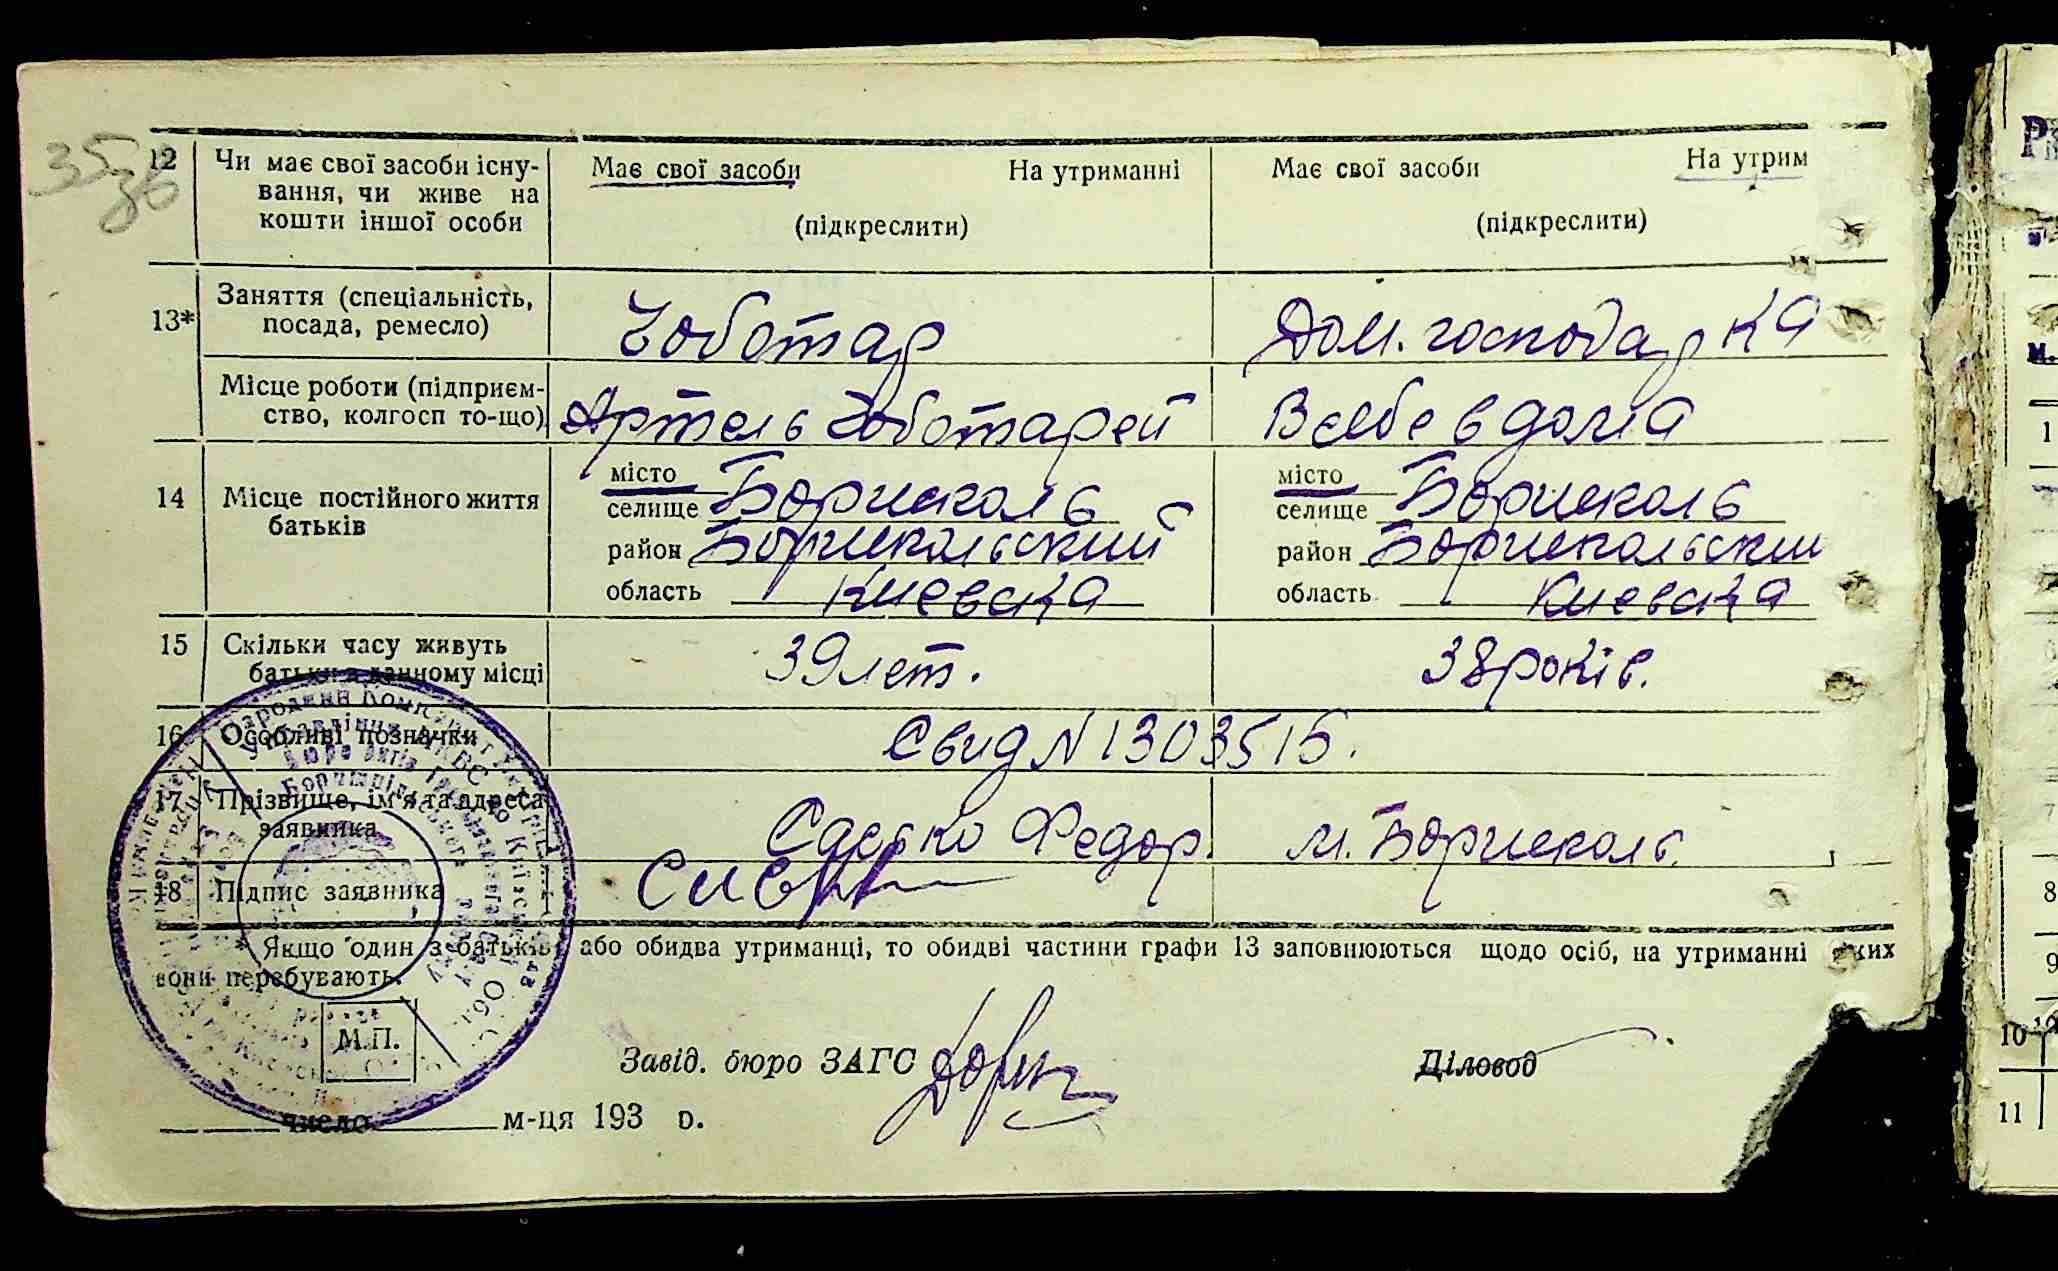 35
36
12 Чи має свої засоби існу- Має свої засоби На утриманні Має свої засоби На утрим
вання, чи живе на
кошти іншої особи (підкреслити) (підкреслити)
13* Заняття (спеціальність,
посада, ремесло) Чоботар Дом. господарка
Місце роботи (підприєм-
ство, колгосп то-що) Артель Чоботарей Всебе вдома
14 Місце постійного життя
батьків
місто селище Бориеполь місто селище Бориеполь
район Бориепольский район Бориепольский
область Киевска область Киевска
15 Скільки часу живуть
батьки в данному місці 39 лет. 38 років.
16 Особливі позначки Свид N 1303515.
17 Прізвище, ім'я та адреса
заявника Федор. м. Бориеполь.
18 Підпис заявника
* Якщо один з батьків або обидва утриманці, то обидві частини графи 13 заповнюються щодо осіб, на утриманні яких
вони перебувають.
М.П.
Завід. бюро ЗАГС Діловод
число м-ця 193 р.
1
7
8
9
10
11